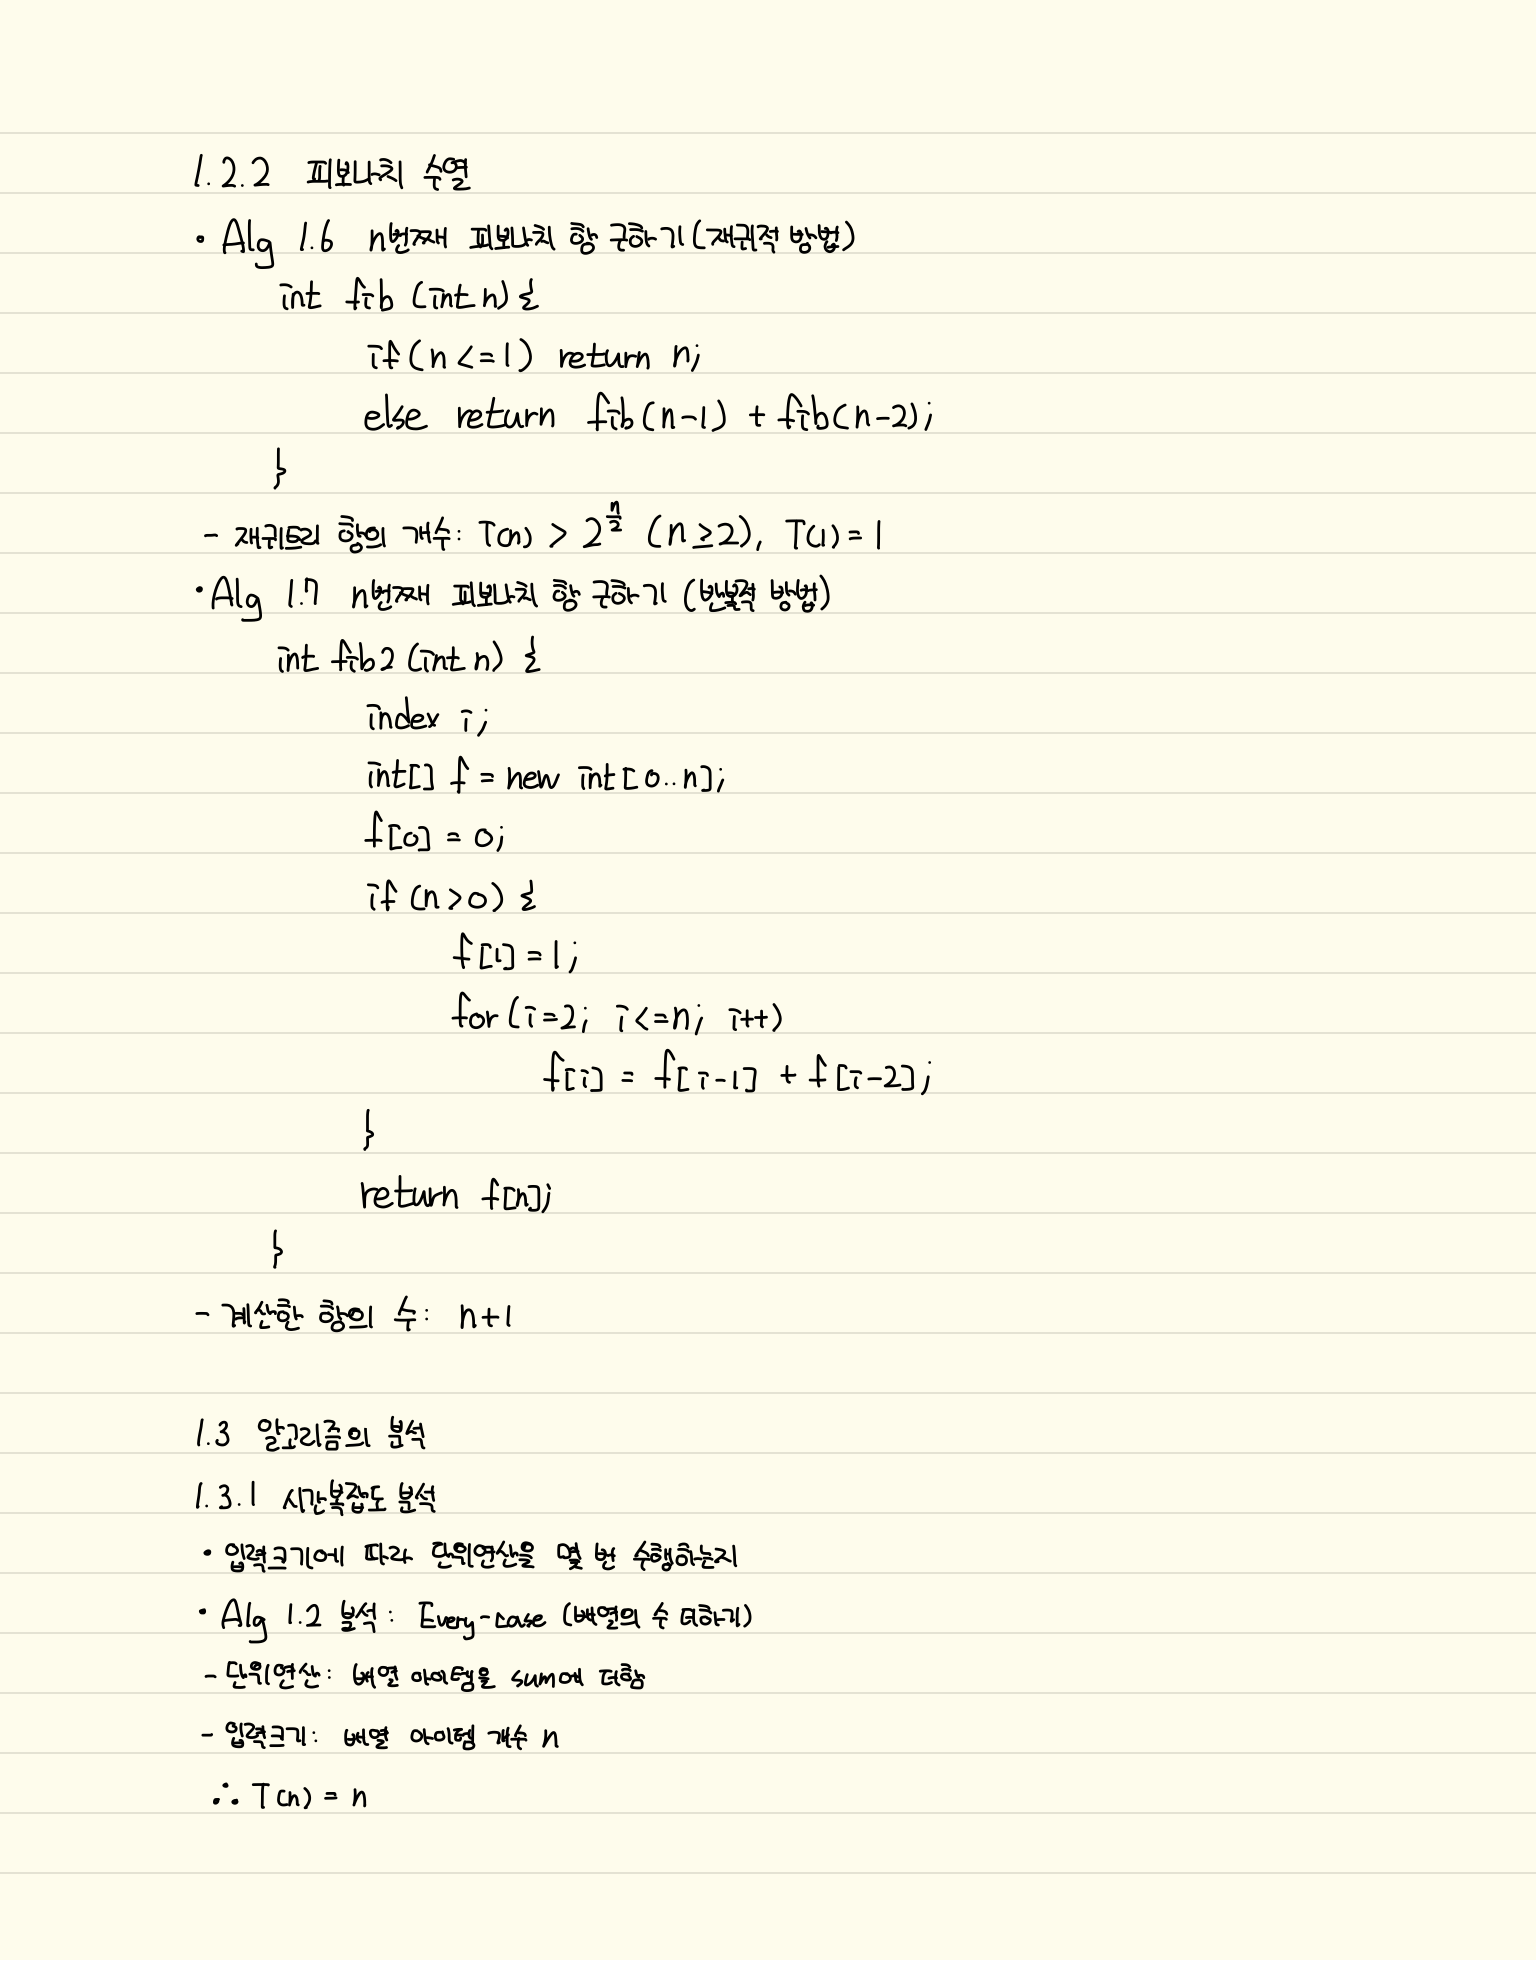 1.2.2 피보나치 수열
• Alg 1.6 n번째 피보나치 항 구하기 (재귀적 방법)
int fib (int n) {
if (n <= 1) return n;
else return fib(n-1) + fib(n-2);
}
- 재귀트리 항의 개수: T(n) > 2^(n/2) (n ≥ 2), T(1) = 1
• Alg 1.7 n번째 피보나치 항 구하기 (반복적 방법)
int fib2 (int n) {
index i;
int[] f = new int[0..n];
f[0] = 0;
if (n > 0) {
f[1] = 1;
for (i=2; i<=n; i++)
f[i] = f[i-1] + f[i-2];
}
return f[n];
}
- 계산한 항의 수: n+1
1.3 알고리즘의 분석
1.3.1 시간복잡도 분석
• 입력크기에 따라 단위연산을 몇 번 수행하는지
• Alg 1.2 분석: Every-case (배열의 수 더하기)
- 단위연산: 배열 아이템을 sum에 더함
- 입력크기: 배열 아이템 개수 n
∴ T(n) = n